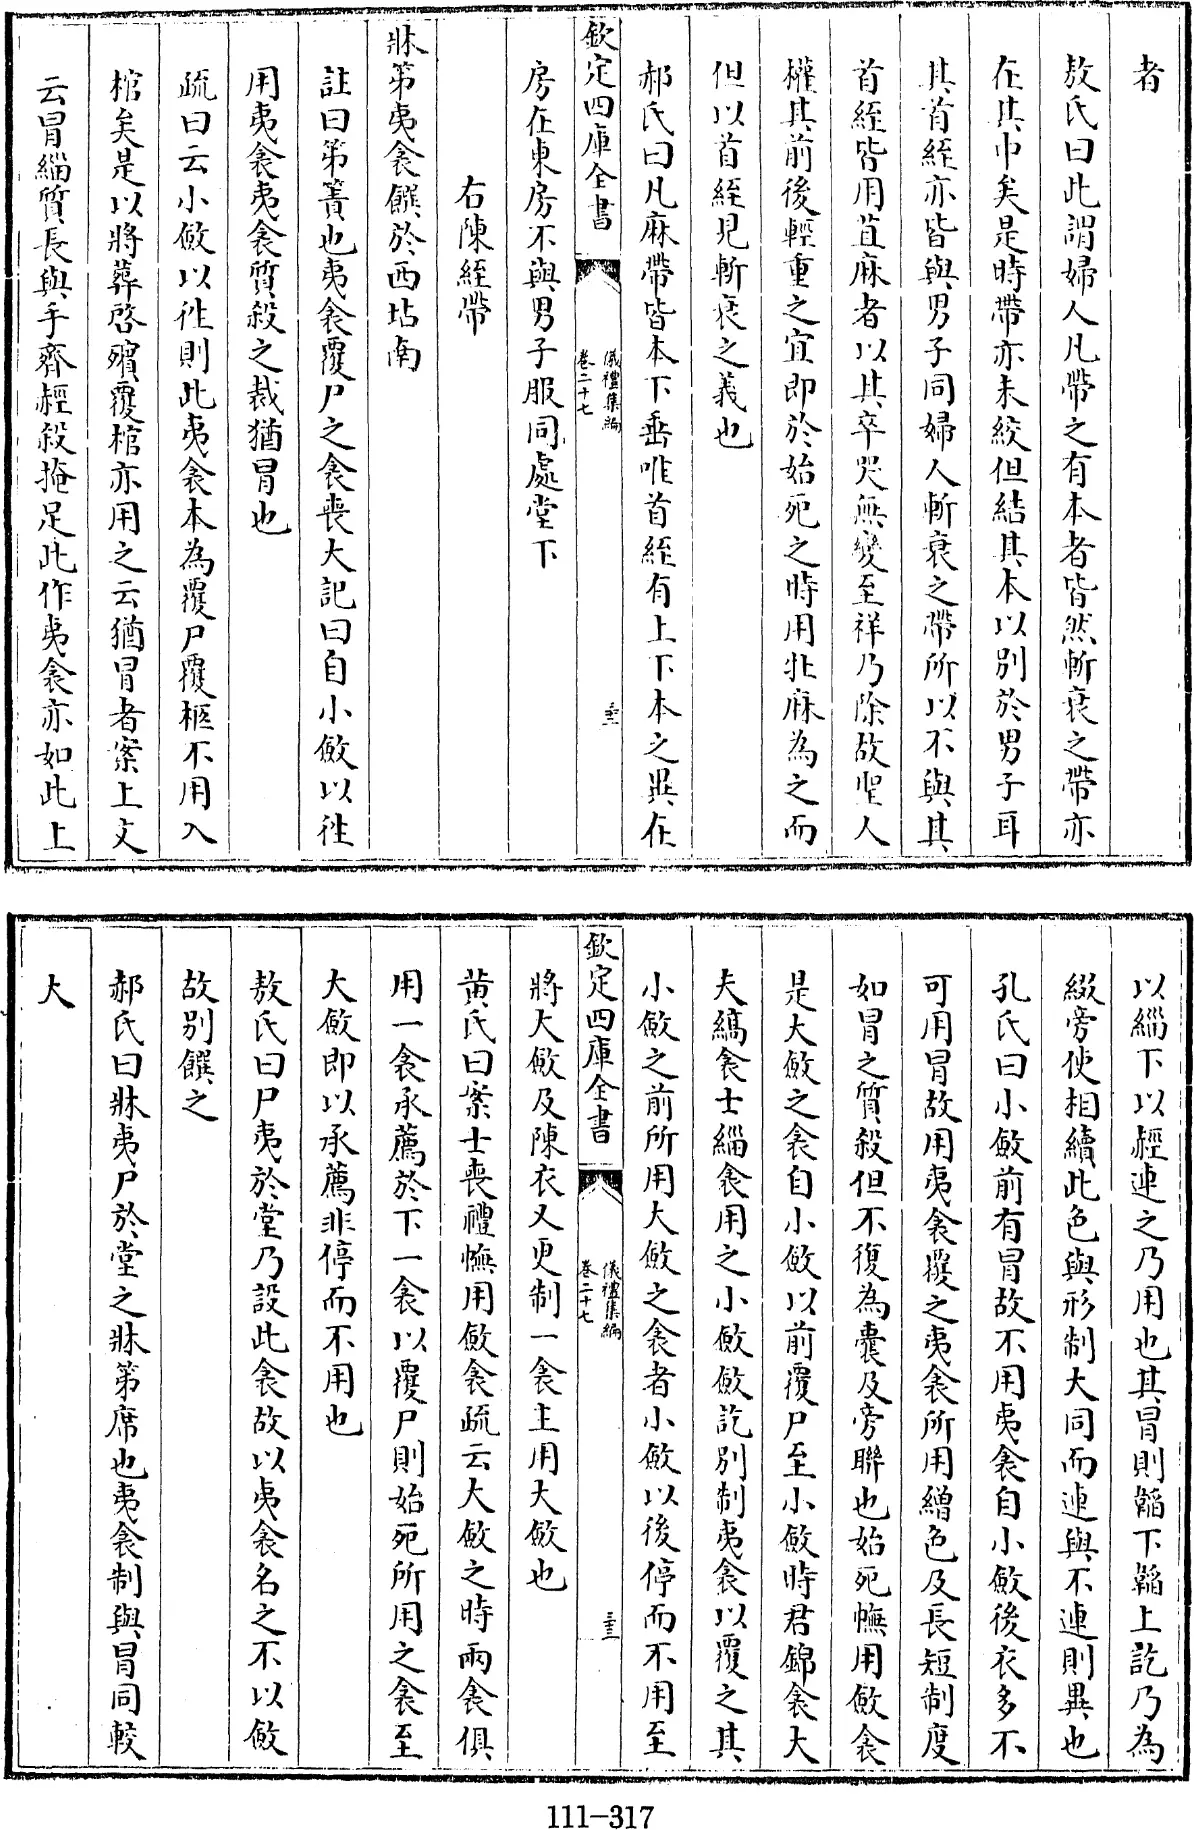 者
敖氏曰此謂婦人凡帶之有本者皆然斬衰之帶亦
在其中矣是時帶亦未絞但結其本以别於男子耳
其首絰亦皆與男子同婦人斬衰之帶所以不與其
首絰皆用苴麻者以其卒哭無變至祥乃除故聖人
權其前後輕重之宜即於始死之時用牡麻為之而
但以首絰見斬衰之義也
郝氏曰凡麻帶皆本下垂唯首絰有上下本之異在
欽定四庫全書
儀禮集編
卷二十七
三十二
房在東房不與男子服同處堂下
右陳絰帶
牀笫夷衾饌於西坫南
註曰笫簀也夷衾覆尸之衾喪大記曰自小斂以往
用夷衾夷衾質殺之裁猶冒也
疏曰云小斂以往則此夷衾本為覆尸覆柩不用入
棺矣是以將葬啓殯覆棺亦用之云猶冒者案上文
云冒緇質長與手齊䞓殺掩足此作夷衾亦如此上
以緇下以䞓連之乃用也其冒則韜下韜上訖乃為
綴旁使相續此色與形制大同而連與不連則異也
孔氏曰小斂前有冒故不用夷衾自小斂後衣多不
可用冒故用夷衾覆之夷衾所用繒色及長短制度
如冒之質殺但不復為囊及旁聯也始死幠用斂衾
是大斂之衾自小斂以前覆尸至小斂時君錦衾大
夫縞衾士緇衾用之小斂斂訖别制夷衾以覆之其
小斂之前所用大斂之衾者小斂以後停而不用至
欽定四庫全書
儀禮集編
卷二十七
三十三
將大斂及陳衣又更制一衾主用大斂也
黄氏曰案士喪禮幠用斂衾疏云大斂之時兩衾俱
用一衾承薦於下一衾以覆尸則始死所用之衾至
大斂即以承薦非停而不用也
敖氏曰尸夷於堂乃設此衾故以夷衾名之不以斂
故别饌之
郝氏曰牀夷尸於堂之牀笫席也夷衾制與冒同較
大
111-317